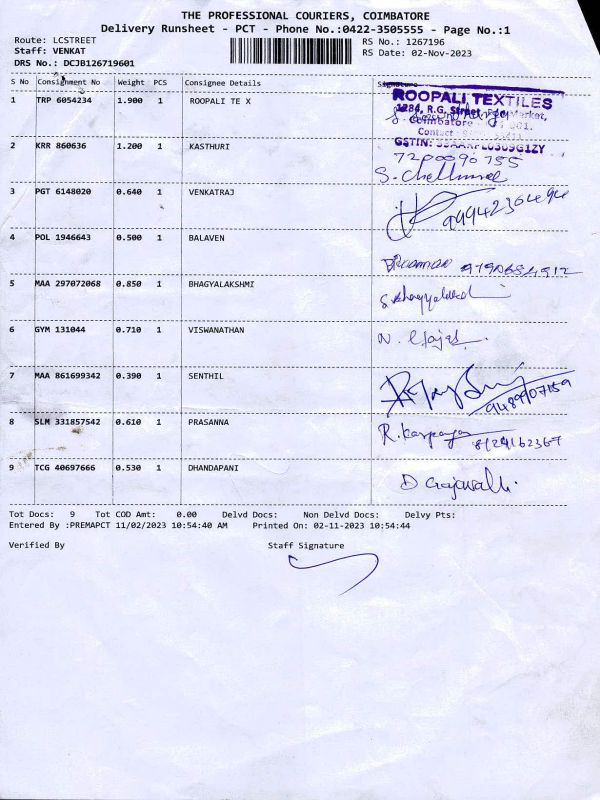 THE PROFESSIONAL COURIERS, COIMBATORE
Delivery Runsheet - PCT - Phone No.:0422-3505555 - Page No.:1
Route: LCSTREET RS No.: 1267196
Staff: VENKAT RS Date: 02-Nov-2023
DRS No.: DCJB126719601
S No Consignment No Weight PCS Consignee Details Signature
1 TRP 6054234 1.900 1 ROOPALI TE X
ROOPALI TEXTILES
1284, R.G. Street, Market,
Coimbatore 001.
Contact
2 KRR 860636 1.200 1 KASTHURI
7200090755
3 PGT 6148020 0.640 1 VENKATRAJ
4 POL 1946643 0.500 1 BALAVEN
5 MAA 297072068 0.850 1 BHAGYALAKSHMI
6 GYM 131044 0.710 1 VISWANATHAN
7 MAA 861699342 0.390 1 SENTHIL
9489907159
8 SLM 331857542 0.610 1 PRASANNA
9 TCG 40697666 0.530 1 DHANDAPANI
Tot Docs: 9 Tot COD Amt: 0.00 Delvd Docs: Non Delvd Docs: Delvy Pts:
Entered By :PREMAPCT 11/02/2023 10:54:40 AM Printed On: 02-11-2023 10:54:44
Verified By Staff Signature